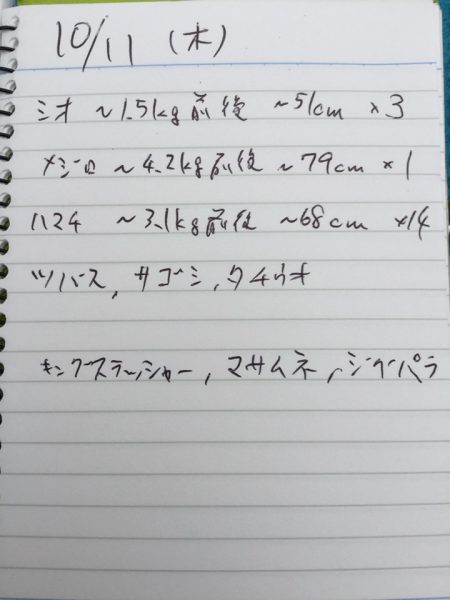 10/11 (木)
シオ ~1.5kg前後 ~51cm ×3
メジロ ~4.2kg前後 ~79cm ×1
ハマチ ~3.1kg前後 ~68cm ×14
ツバス, サゴシ, タチウオ
キングスラッシャー, マサムネ, ジグパラ